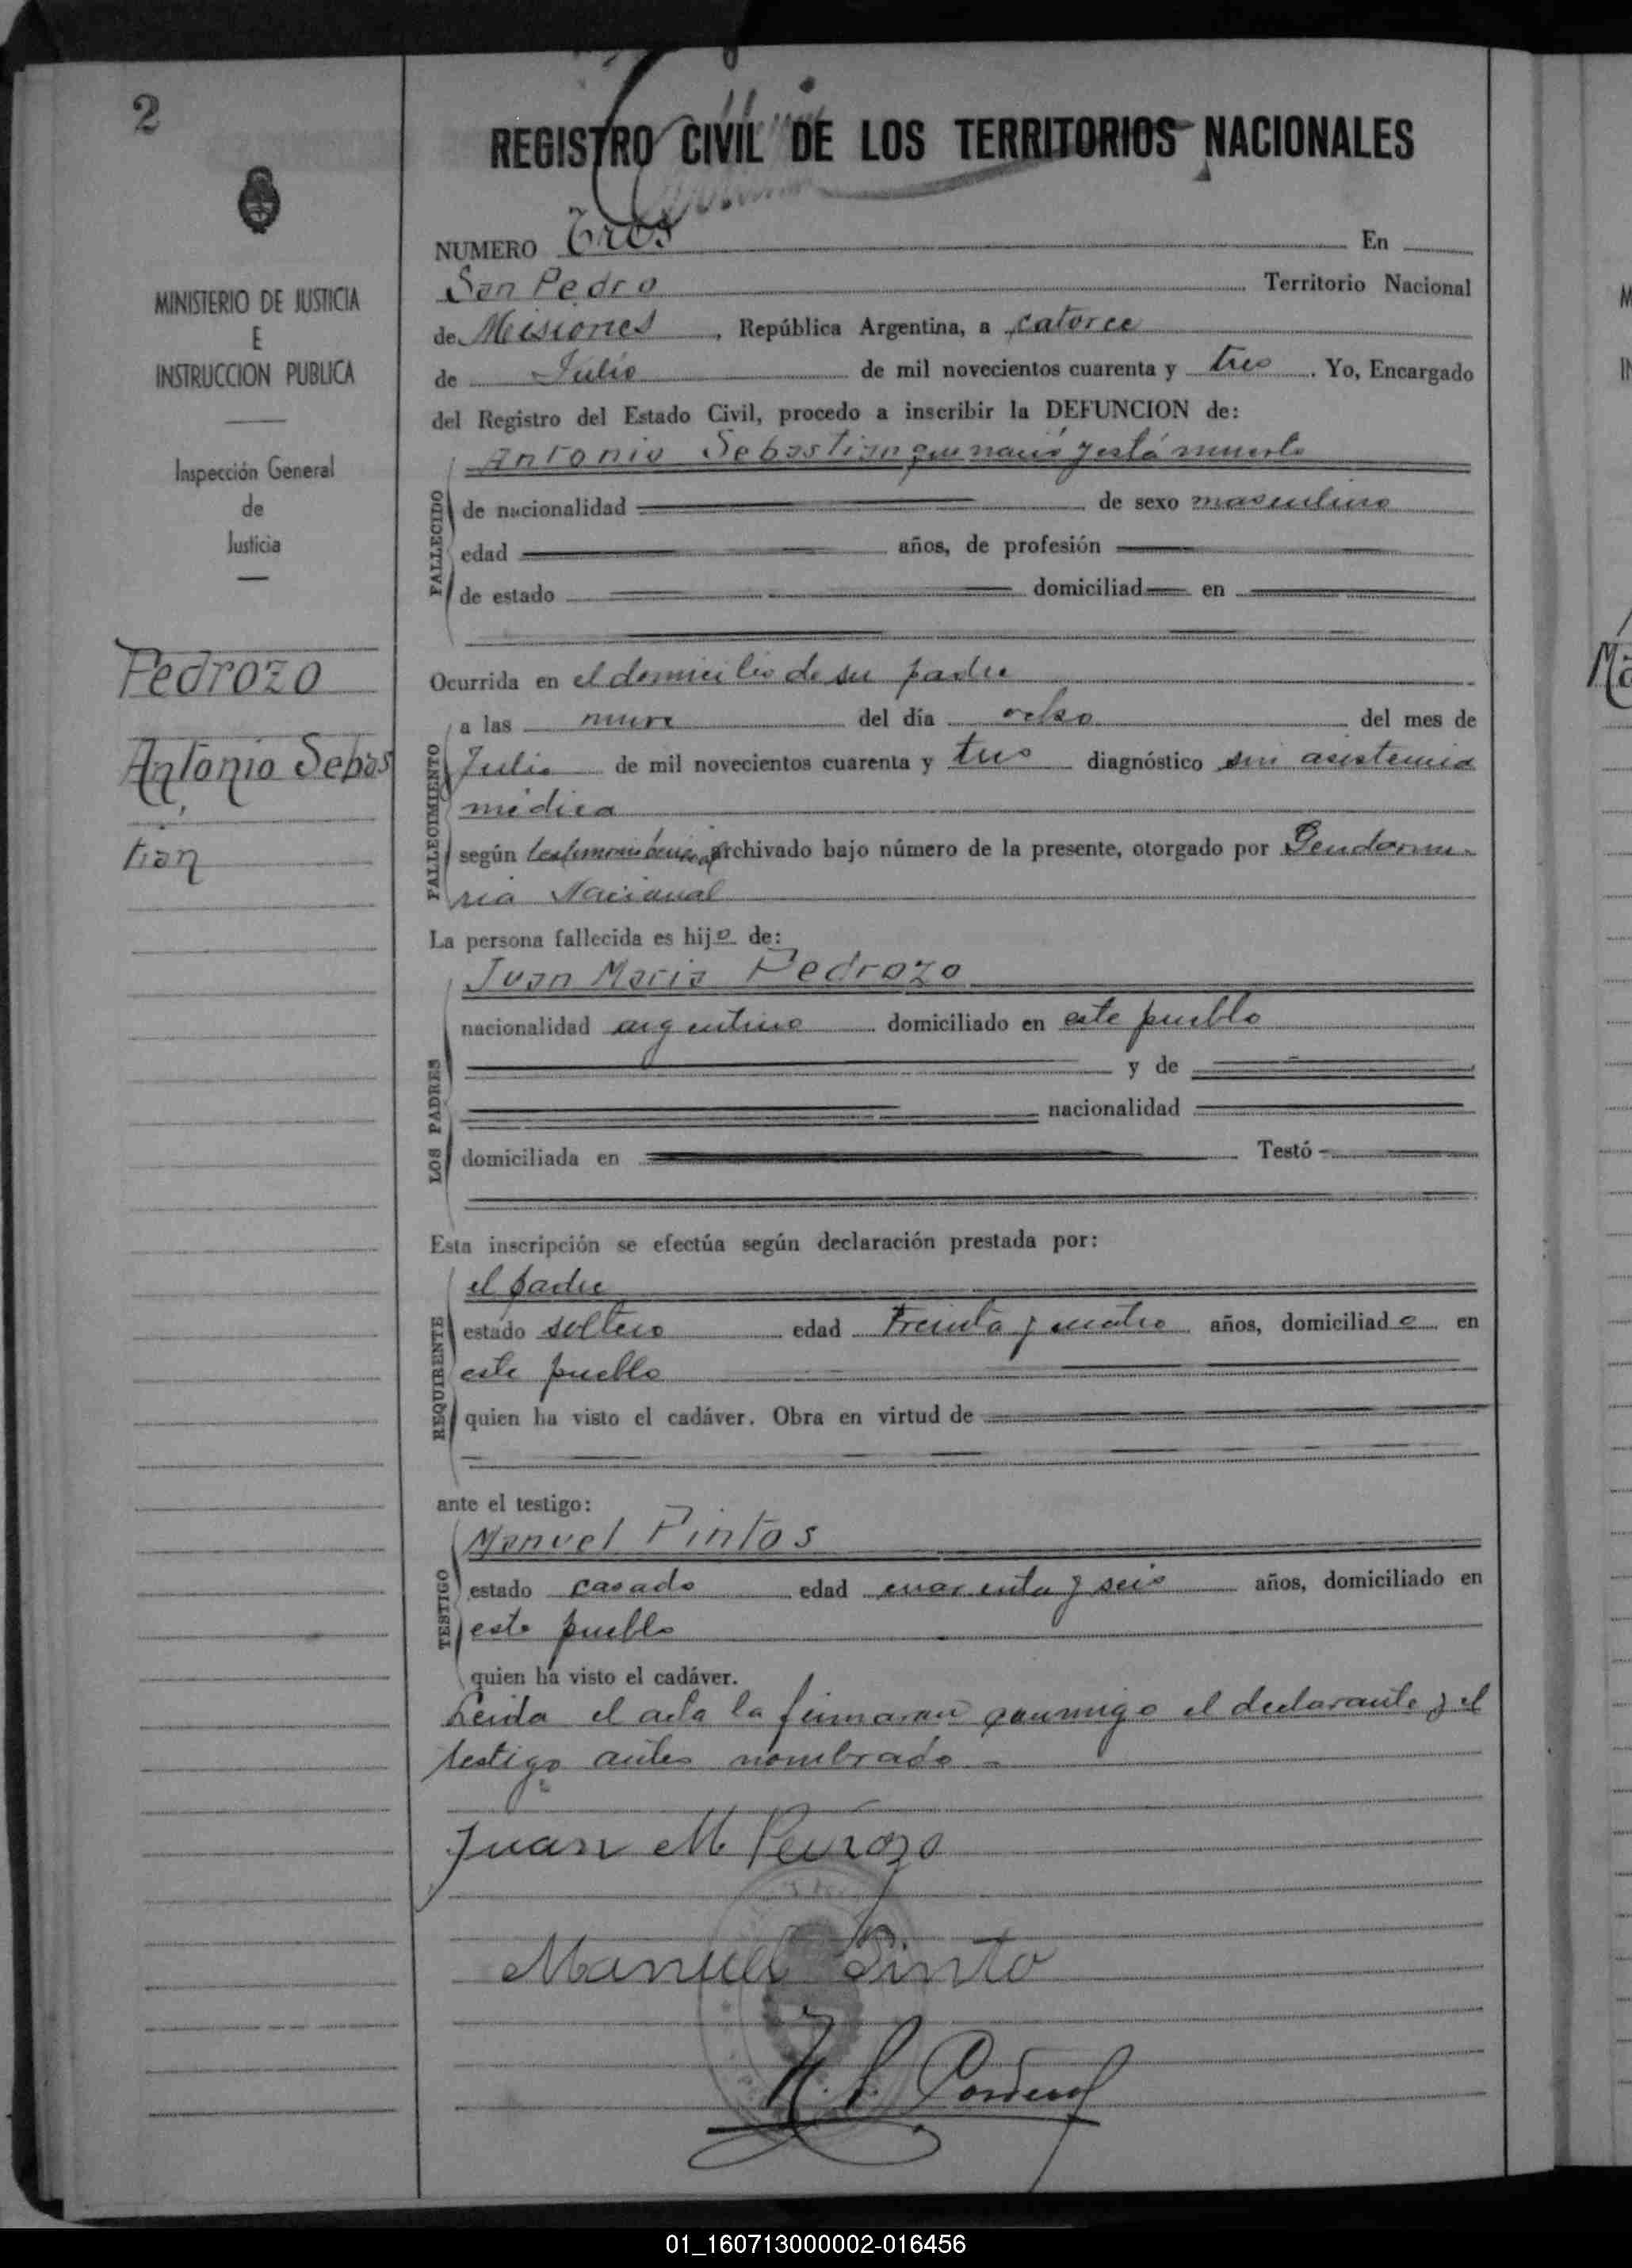 2
REGISTRO CIVIL DE LOS TERRITORIOS NACIONALES
MINISTERIO DE JUSTICIA
E
INSTRUCCION PUBLICA
Inspección General
de
Justicia
Pedrozo
Antonio Sebas
tian
NUMERO Tres En
San Pedro Territorio Nacional
de Misiones, República Argentina, a catorce
de Julio de mil novecientos cuarenta y tres. Yo, Encargado
del Registro del Estado Civil, procedo a inscribir la DEFUNCION de:
Antonio Sebastian que nació y está muerto
FALLECIDO
de nacionalidad de sexo masculino
edad años, de profesión
de estado domiciliad en
Ocurrida en el domicilio de su padre
FALLECIMIENTO
a las nueve del día ocho del mes de
Julio de mil novecientos cuarenta y tres diagnóstico sin asistencia
médica
según archivado bajo número de la presente, otorgado por Gendarme-
ria Nacional
La persona fallecida es hijo de:
LOS PADRES
Juan Maria Pedrozo
nacionalidad argentino domiciliado en este pueblo
y de
nacionalidad
domiciliada en Testó
Esta inscripción se efectúa según declaración prestada por:
REQUIRENTE
el padre
estado soltero edad treinta y cuatro años, domiciliado en
este pueblo
quien ha visto el cadáver. Obra en virtud de
ante el testigo:
TESTIGO
Manuel Pintos
estado casado edad cuarenta y seis años, domiciliado en
este pueblo
quien ha visto el cadáver.
Leida el acta la firmaron conmigo el declarante y el
testigo antes nombrado
Juan M Pedrozo
Manuel Pinto
01_160713000002-016456